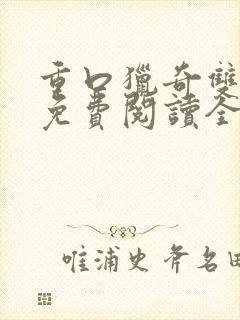 重口獵奇雙
免費閱讀全
唯浦史斧名田